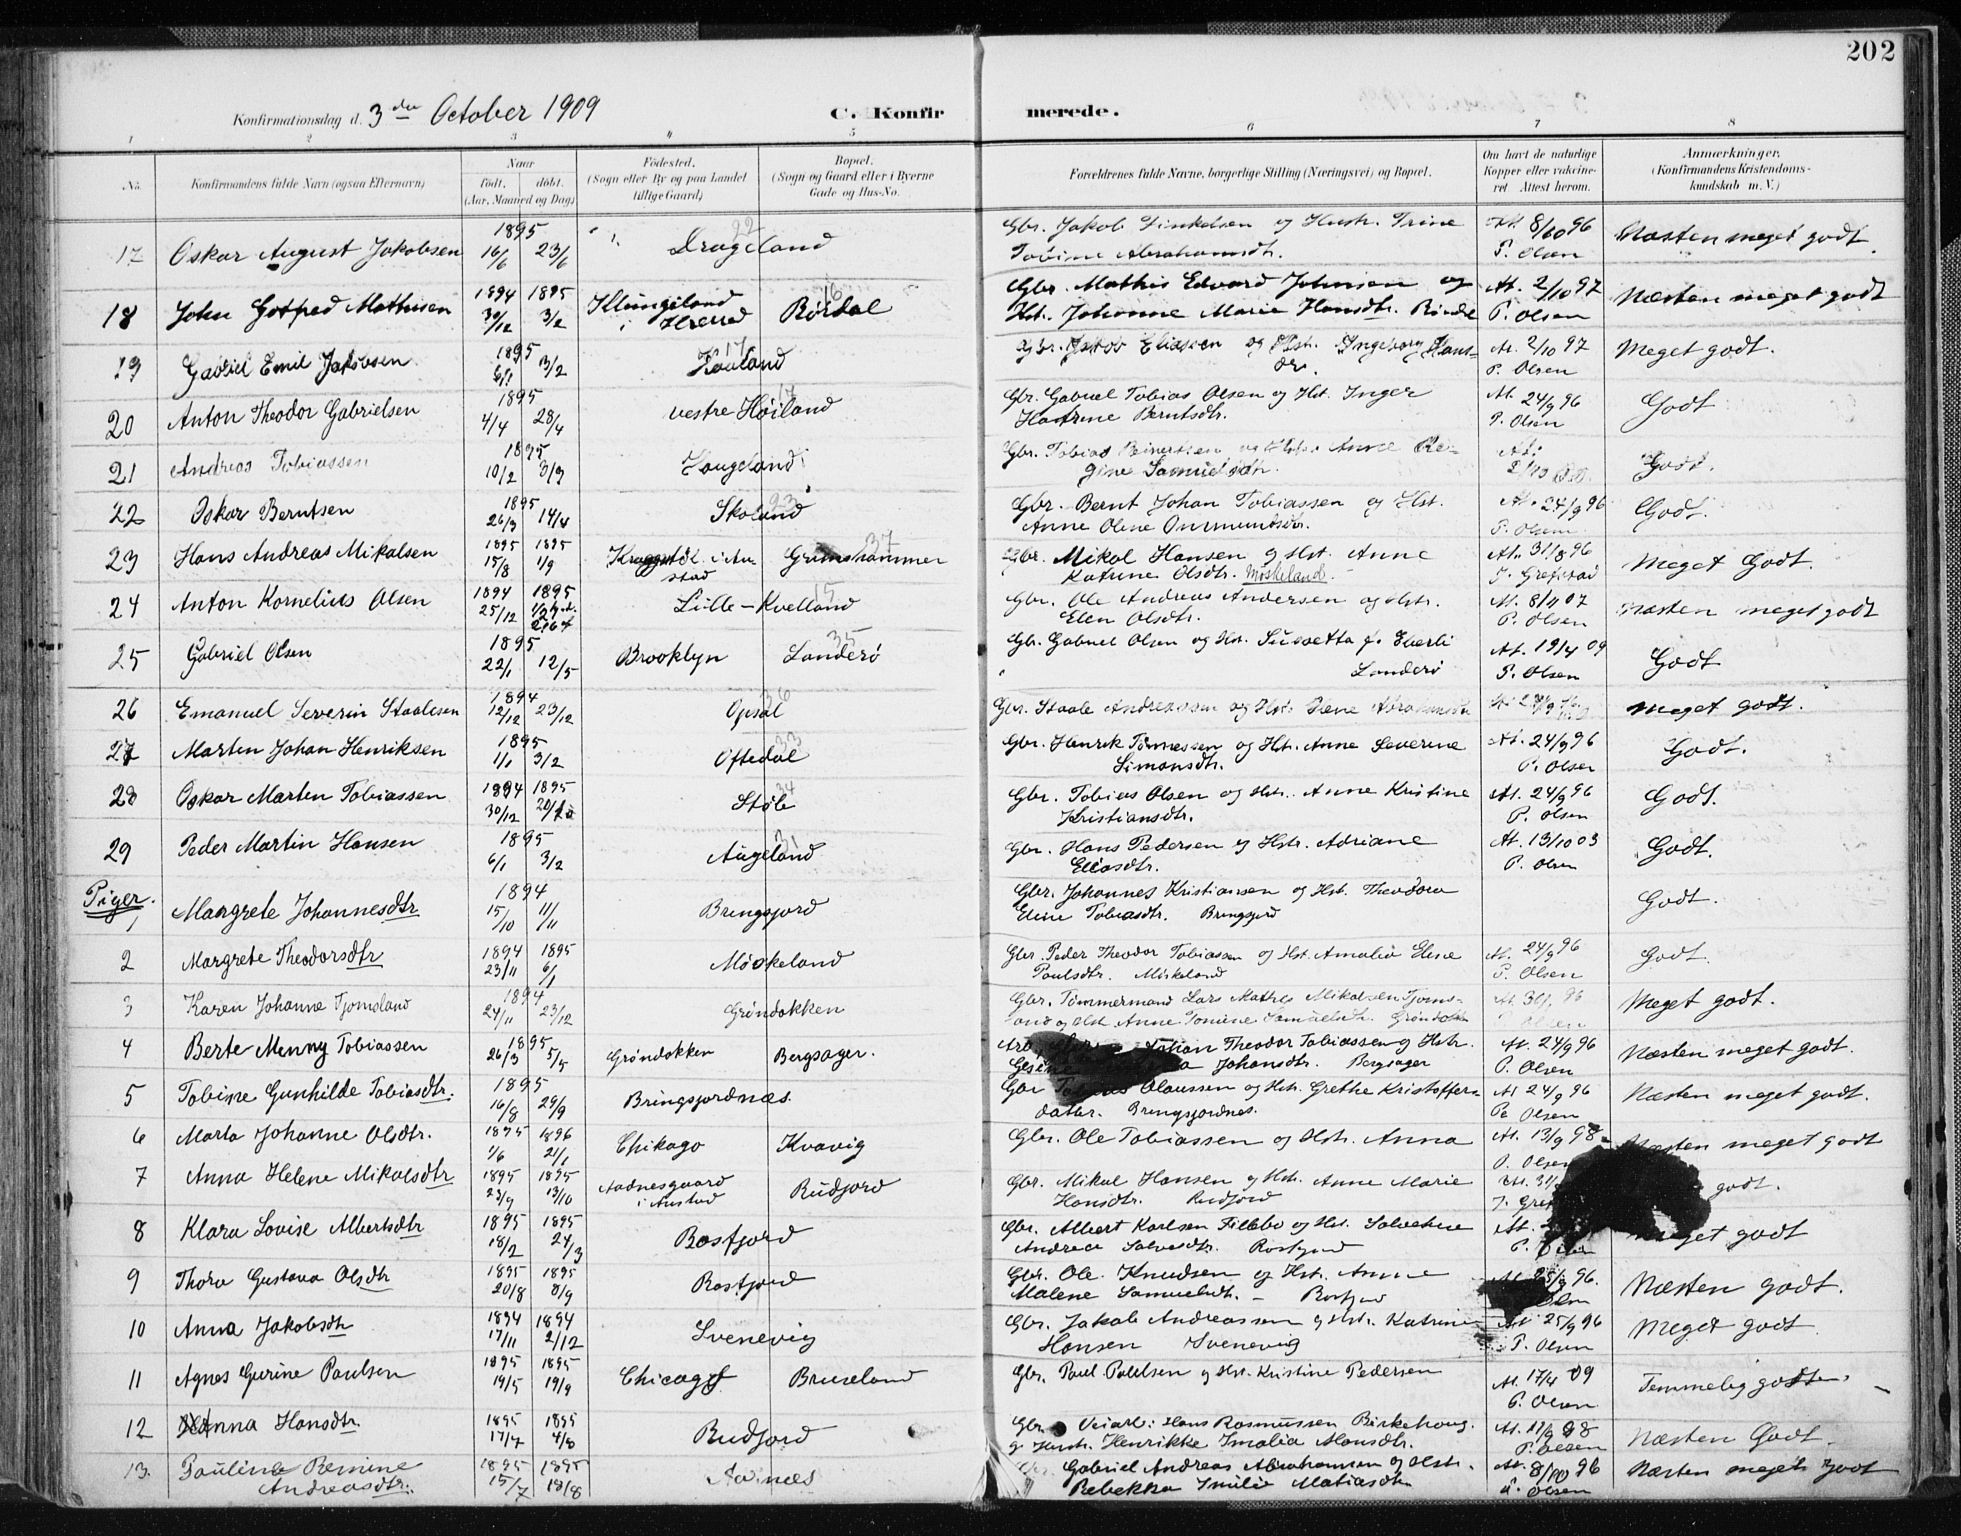 202
Konfirmationsdag d. 3die October 1909
C. Konfirmerede.
1 2 3 4 5 6 7 8
No. Konfirmandens fulde Navn (ogsaa Efternavn) Naar født. døbt. (Aar, Maaned og Dag) Fødested. (Sogn eller By og paa Landet tillige Gaard) Bopæl. (Sogn og Gaard eller i Byerne Gade og Hus-No. Forældrenes fulde Navne, borgerlige Stilling (Næringsvei) og Bopæl. Om havt de naturlige Kopper eller vakcineret Attest herom. Anmærkninger. (Konfirmandens Kristendomskundskab m. V.)
17 Oskar August Jakobsen 1895 16/6 23/6 Drageland 22 Gbr. Jakob og Hustr. Trine At. 8/10 96 Næsten meget godt.
Tobine Abrahamsdtr. P. Olsen
18 John Gotfred Mathisen 1894 1895 30/12 3/2 i Herred Rørdal 16 Gbr. Mathis Edvard Johnsen og At. 2/10 97 Næsten meget godt
Hst. Johanne Marie Hansdtr. P. Olsen
19 Gabriel Emil Jakobsen 1895 3/2 Kaaland 17 Gbr. Jakob Eliassen og Hst. Ingeborg Hans- At. 2/10 97 Meget godt.
dtr. P. Olsen
20 Anton Theodor Gabrielsen 1895 4/4 28/4 vestre Høiland 17 Gbr. Gabriel Tobias Olsen og Hst. Inger At. 24/9 96 Godt
Katrine Berntsdtr. P. Olsen
21 Andreas Tobiassen 1895 10/2 3/3 Haugeland Gbr. Tobias Reinertsen og Hst. Anne Re- At. Godt.
gine Samuelsdtr.
22 Oskar Berntsen 1895 26/3 14/4 Skoland 23 Gbr. Bernt Johan Tobiassen og Hst. At. 24/9 96 Godt.
Anne Olene Onmundsdtr. P. Olsen
23 Hans Andreas Mikalsen 1895 1895 15/8 1/9 i Au- Grimshammer 37 Gbr. Mikal Hansen og Hst. Anne At. 31/8 96 Meget Godt.
stad Katrine Olsdtr. Møskeland. J. Grefstad
24 Anton Kornelius Olsen 1894 1895 25/12 Lille-Kvelland 15 Gbr. Ole Andreas Andersen og Hstr. At. 8/11 07 Næsten meget godt
Elen Olsdtr. P. Olsen
25 Gabriel Olsen 1895 22/1 12/5 Brooklyn Landerø 35 Gb. Gabriel Olsen og Hst. f. At. 19/4 09 Godt
Landerø P. Olsen
26 Emanuel Severin Staalesen 1894 12/12 23/12 Opsal 36 Gbr. Staale Andreassen og Hst. Abrahamsdtr At. meget godt.
27 Martin Johan Henriksen 1895 1/1 3/2 Oftedal 33 Gbr. Henrik Tønnessen og Hst. Anne Severine At. 24/9 96 Godt.
Simonsdtr. P. Olsen
28 Oskar Martin Tobiassen 1894 1895 30/12 Støle 34 Gbr. Tobias Olsen og Hstr. Anne Kristine At. 24/9 96 Godt.
Kristiansdtr. P. Olsen
29 Peder Martin Hansen 1895 6/1 3/2 Augeland 31 Gbr. Hans Pedersen og Hstr. Adriane At. 13/10 03 Godt.
Eliasdtr. P. Olsen
Piger.
1 Margrete Johannesdtr 1894 15/10 11/11 Bringsjord Gbr. Johannes Kristiansen og Hst. Theodora Godt.
Eline Tobiasdtr. Bringsjord
2 Margrete Theodorsdtr 1894 1895 23/11 6/1 Møskeland Gbr. Peder Theodor Tobiassen og Hst. Amalie Elene At. 24/9 96 Godt.
Paulsdtr. Møskeland P. Olsen
3 Karen Johanne Tjomsland 1894 24/11 23/12 Grøndokken Gbr. Tømmermand Lars Mathis Mikalsen Tjoms- At. 96 Meget godt.
land og Hst. Anne Tomine Samuelsdtr. Grøndokken Olsen
4 Berte Menny Tobiassen 1895 26/3 5/5 Grøndokken Bergsager. Johan Theodor Tobiassen og Hstr. At. 24/9 96 Næsten meget godt.
Johansdtr. Bergsager P. Olsen
5 Tobine Gunhilde Tobiasdtr. 1895 16/8 29/9 Bringsjordnæs. Gbr Olaussen og Hst. Grethe Kristoffers- At 24/9 96 Næsten meget godt.
datter. Bringsjordnes. Pe Olsen
6 Marta Johanne Olsdtr. 1895 1896 1/6 21/1 Chikago Kvavig Gbr. Ole Tobiassen og Hstr. Anna At. 13/9 98 Næsten meget godt
P. Olsen
7 Anna Helene Mikalsdtr 1895 1895 23/9 13/10 Aadnesgaard Rudjord Gbr. Mikal Hansen og Hst. Anne Marie At. godt.
i Austad Hansdtr. Rudjord
8 Klara Lovise Albertsdtr 1895 1895 18/2 24/3 Rosfjord Gbr. Albert Karlsen Fillebo og Hst. At. meget godt
Andrea Salvesdtr. Rosfjord P.
9 Thora Gustava Olsdtr 1895 1895 20/8 8/9 Rosfjord Gbr. Ole Knudsen og Hst. Anne At. 25/9 96. Næsten godt.
Malene Samuelsdtr. – Rosfjord
10 Anna Jakobsdtr 1894 1894 17/11 2/12 Svenevig Gbr. Jakob Andreassen og Hstr. Katrine At 25/9 96 Meget godt.
Hansen Svenevig P. Olsen
11 Agnes Gurine Paulsen 1895 1895 19/5 19/9 Chicago Bruseland Gbr. Paul Paulsen og Hst. Kristine Pedersen At. 17/4 09 Temmelig godt.
P. Olsen
12 Anna Hansdtr. 1895 1895 17/7 4/8 Rudjord Gbr. Hans Rasmussen Birkehoug. At. 11/9 98 Næsten Godt.
og Hustr. Henrikke Imalia P. Olsen
13. Pauline 1895 1895 15/7 18/8 Gabriel Andreas Abrahamsen og Hstr. At. 8/10 96 Næsten meget godt
Andreasdtr. Rebekka Emilie Matiasdtr P. Olsen